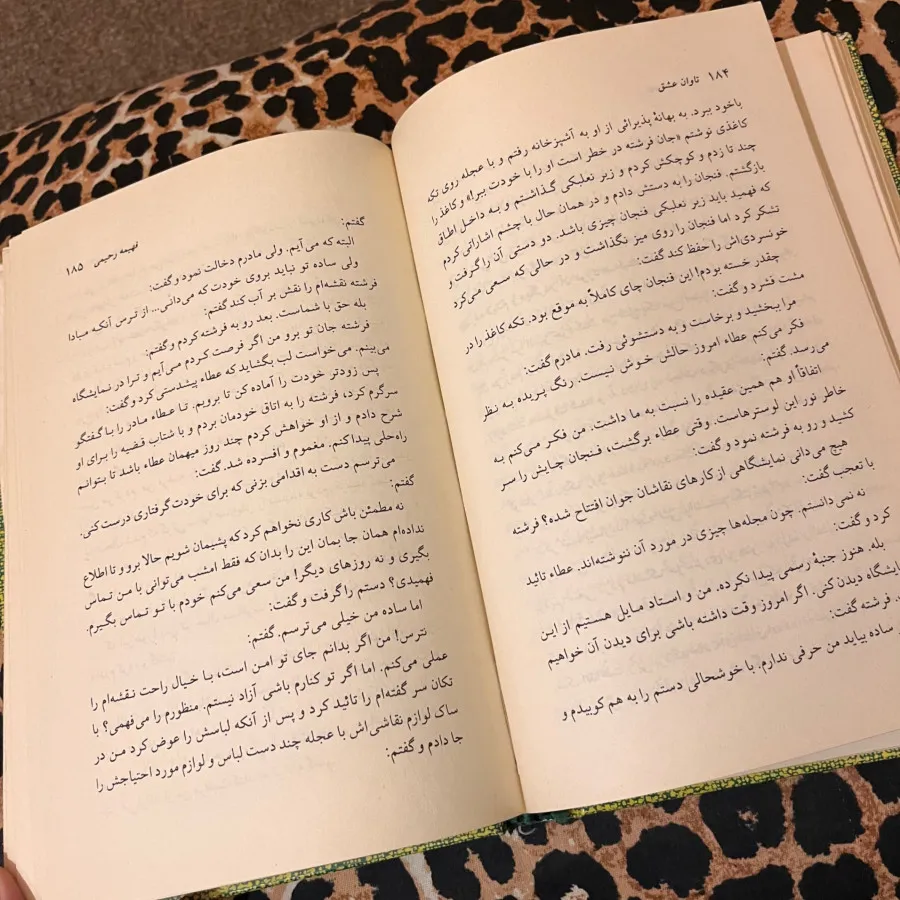 ۱۸۴ تاوان عشق
باخود ببرد. به بهانۀ پذیرائی از او به آشپزخانه رفتم و با عجله روی تکه
کاغذی نوشتم «جان فرشته در خطر است او را با خودت ببر!» و کاغذ را
چند تا زدم و کوچکش کردم و زیر نعلبکی گذاشتم و به داخل اطاق
بازگشتم. فنجان را به دستش دادم و در همان حال با چشم اشاراتی کردم
که فهمید باید زیر نعلبکی فنجان چیزی باشد. دو دستی آن را گرفت و
تشکر کرد اما فنجان را روی میز نگذاشت و در حالی که سعی می‌کرد
خونسردی‌اش را حفظ کند گفت:
چقدر خسته بودم! این فنجان چای کاملاً به موقع بود. تکه کاغذ را در
مشت فشرد و گفت:
مرا ببخشید و برخاست و به دستشوئی رفت. مادرم گفت:
فکر می‌کنم عطاء امروز حالش خوش نیست. رنگ پریده به نظر
می‌رسد. گفتم:
اتفاقاً او هم همین عقیده را نسبت به ما داشت. من فکر می‌کنم به
خاطر نور این لوسترهاست. وقتی عطاء برگشت، فنجان چایش را سر
کشید و رو به فرشته نمود و گفت:
هیچ می‌دانی نمایشگاهی از کارهای نقاشان جوان افتتاح شده؟ فرشته
با تعجب گفت:
نه نمی‌دانستم. چون مجله‌ها چیزی در مورد آن ننوشته‌اند. عطاء تائید
کرد و گفت:
بله. هنوز جنبۀ رسمی پیدا نکرده. من و استاد مایل هستیم از این
نمایشگاه دیدن کنی. اگر امروز وقت داشته باشی برای دیدن آن خواهیم
فرشته گفت:
ساده بیاید من حرفی ندارم. با خوشحالی دستم را به هم کوبیدم و
فهیمه رحیمی ۱۸۵
گفتم:
البته که می‌آیم. ولی مادرم دخالت نمود و گفت:
ولی ساده تو نباید بروی خودت که می‌دانی... از ترس آنکه مبادا
فرشته نقشه‌ام را نقش بر آب کند گفتم:
بله حق با شماست. بعد رو به فرشته کردم و گفتم:
فرشته جان تو برو من اگر فرصت کردم می‌آیم و ترا در نمایشگاه
می‌بینم. می‌خواست لب بگشاید که عطاء پیشدستی کرد و گفت:
پس زودتر خودت را آماده کن تا برویم. تا عطاء مادر را با گفتگو
سرگرم کرد، فرشته را به اتاق خودمان بردم و با شتاب قضیه را برای او
شرح دادم و از او خواهش کردم چند روز میهمان عطاء باشد تا بتوانم
راه‌حلی پیدا کنم. مغموم و افسرده شد. گفت:
می‌ترسم دست به اقدامی بزنی که برای خودت گرفتاری درست کنی.
گفتم:
نه مطمئن باش کاری نخواهم کرد که پشیمان شویم حالا برو و تا اطلاع
نداده‌ام همان جا بمان این را بدان که فقط امشب می‌توانی با من تماس
بگیری و نه روزهای دیگر! من سعی می‌کنم خودم با تو تماس بگیرم.
فهمیدی؟ دستم را گرفت و گفت:
اما ساده من خیلی می‌ترسم. گفتم:
نترس! من اگر بدانم جای تو امن است، با خیال راحت نقشه‌ام را
عملی می‌کنم. اما اگر تو کنارم باشی آزاد نیستم. منظورم را می‌فهمی؟ با
تکان سر گفته‌ام را تائید کرد و پس از آنکه لباسش را عوض کرد من در
ساک لوازم نقاشی‌اش با عجله چند دست لباس و لوازم مورد احتیاجش را
جا دادم و گفتم: